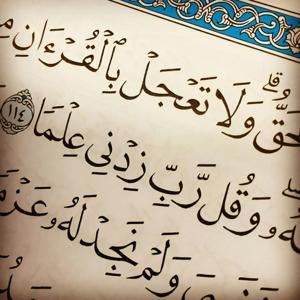 حَقُّ ۗ وَلَا تَعْجَلْ بِٱلْقُرْءَانِ
هُۥ ۖ وَقُل رَّبِّ زِدْنِى عِلْمًا ١١٤
وَلَمْ نَجِدْ لَهُۥ عَزْمً